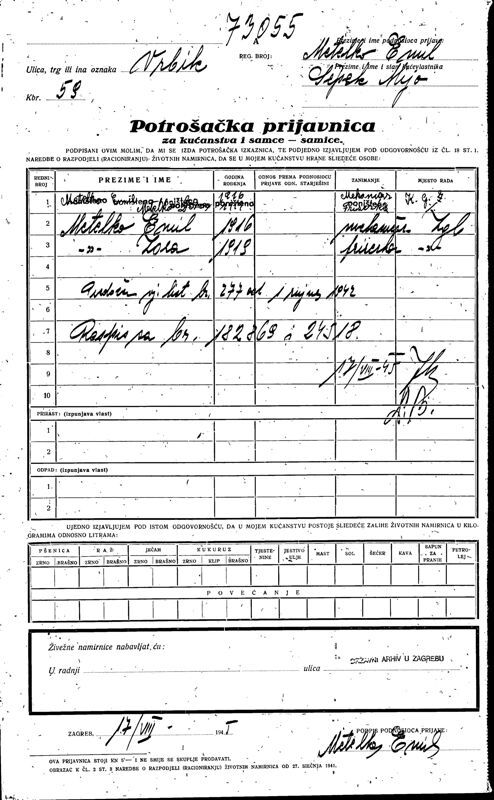 73055
REG. BROJ:
Prezime i ime podnosioca prijave:
Metelko Emil
Ulica, trg ili ina oznaka Vrbik
Prezime i ime i stan kućevlastnika
Šepek Mijo
Kbr. 59
Potrošačka prijavnica
za kućanstva i samce — samice.
POTPISANI OVIM MOLIM, DA MI SE IZDA POTROŠAČKA IZKAZNICA, TE PODJEDNO IZJAVLJUJEM POD ODGOVORNOŠĆU IZ ČL. 18 ST. 1.
NAREDBE O RAZPODJELI (RACIONIRANJU) ŽIVOTNIH NAMIRNICA, DA SE U MOJEM KUĆANSTVU HRANE SLJEDEĆE OSOBE:
REDNI BROJ PREZIME I IME GODINA RODJENJA ODNOS PREMA PODNOSIOCU PRIJAVE ODN. STARJEŠINI ZANIMANJE MJESTO RADA
1
2 Metelko Emil 1916 mehaničar Zgb
3 -"- Zora 1919 -"-
4
5 277 od 1 1942
6
7 br. 182869 i 24518.
8
9 17/VIII-45
10
PRIRAST: (Izpunjava vlast)
1
2
ODPAD: (Izpunjava vlast)
1
2
UJEDNO IZJAVLJUJEM POD ISTOM ODGOVORNOŠĆU, DA U MOJEM KUĆANSTVU POSTOJE SLJEDEĆE ZALIHE ŽIVOTNIH NAMIRNICA U KILO-
GRAMIMA ODNOSNO LITRAMA:
PŠENICA RAŽ JEČAM KUKURUZ TJESTE-NINE JESTIVO ULJE MAST SOL ŠEĆER KAVA SAPUN ZA PRANJE PETRO-LEJ
ZRNO BRAŠNO ZRNO BRAŠNO ZRNO BRAŠNO ZRNO KLIP BRAŠNO
POVEĆANJE
Živežne namirnice nabavljat ću:
U radnji ulica
DRŽAVNI ARHIV U ZAGREBU
ZAGREB, 17/VIII - 194 5
POTPIS PODNOSIOCA PRIJAVE:
Metelko Emil
OVA PRIJAVNICA STOJI KN 5'— I NE SMIJE SE SKUPLJE PRODAVATI.
OBRAZAC K ČL. 2 ST. 2 NAREDBE O RAZPODJELI (RACIONIRANJU) ŽIVOTNIH NAMIRNICA OD 27. SIEČNJA 1941.